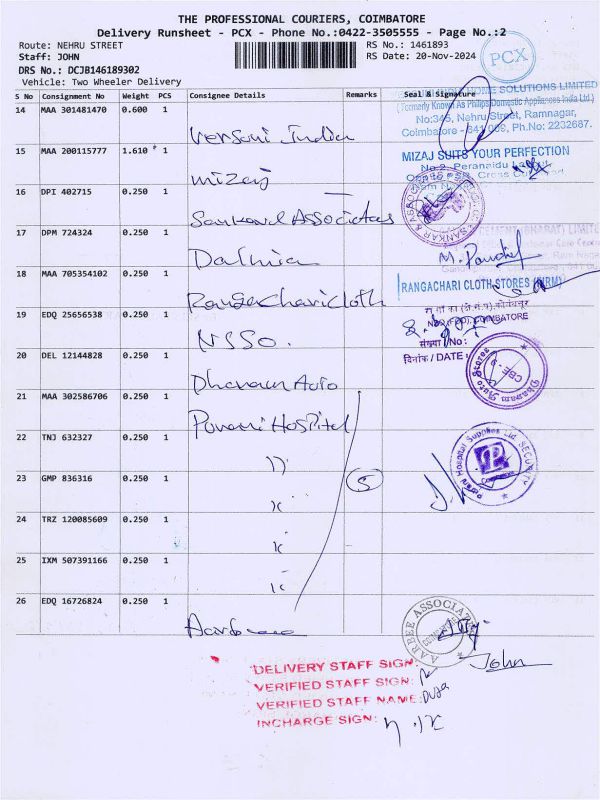 THE PROFESSIONAL COURIERS, COIMBATORE
Delivery Runsheet - PCX - Phone No.:0422-3505555 - Page No.:2
Route: NEHRU STREET
RS No.: 1461893
Staff: JOHN
RS Date: 20-Nov-2024
DRS No.: DCJB146189302
Vehicle: Two Wheeler Delivery
PCX
S No Consignment No Weight PCS Consignee Details Remarks Seal & Signature
HOME SOLUTIONS LIMITED
(Formerly Known As Philips Domestic Appliances India Ltd.)
No:345, Nehru Street, Ramnagar,
Coimbatore - 641 009, Ph.No: 2232687.
14 MAA 301481470 0.600 1 Versuni India
MIZAJ SUITS YOUR PERFECTION
15 MAA 200115777 1.610 1 Mizaj
16 DPI 402715 0.250 1 Sankar Associates
17 DPM 724324 0.250 1 Dalmia
18 MAA 705354102 0.250 1 Rangachari cloth
RANGACHARI CLOTH STORES (FIRM)
19 EDQ 25656538 0.250 1 NSSO.
COIMBATORE
संख्या / No:
दिनांक / DATE:
20 DEL 12144828 0.250 1 Dhanam Auto
Dhanam Auto Stores
CBE
21 MAA 302586706 0.250 1 Pavani Hospital
22 TNJ 632327 0.250 1 "
Hospital Supplies Ltd. SECURITY
P
23 GMP 836316 0.250 1 5
24 TRZ 120085609 0.250 1
25 IXM 507391166 0.250 1
26 EDQ 16726824 0.250 1
AARBEE ASSOCIATES
John
DELIVERY STAFF SIGN:
VERIFIED STAFF SIGN:
VERIFIED STAFF NAME:
INCHARGE SIGN: